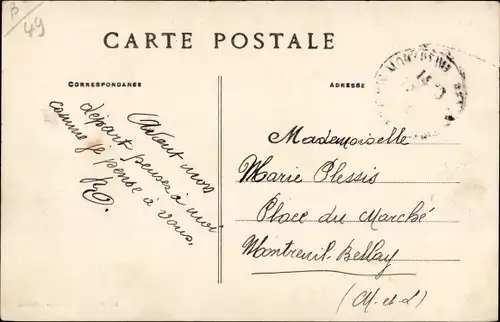 49
CARTE POSTALE
CORRESPONDANCE
ADRESSE
Avant mon
départ pensez à moi
comme je pense à vous.
Mademoiselle
Marie Plessis
Place du Marché
Montreuil-Bellay
(M-et-L)